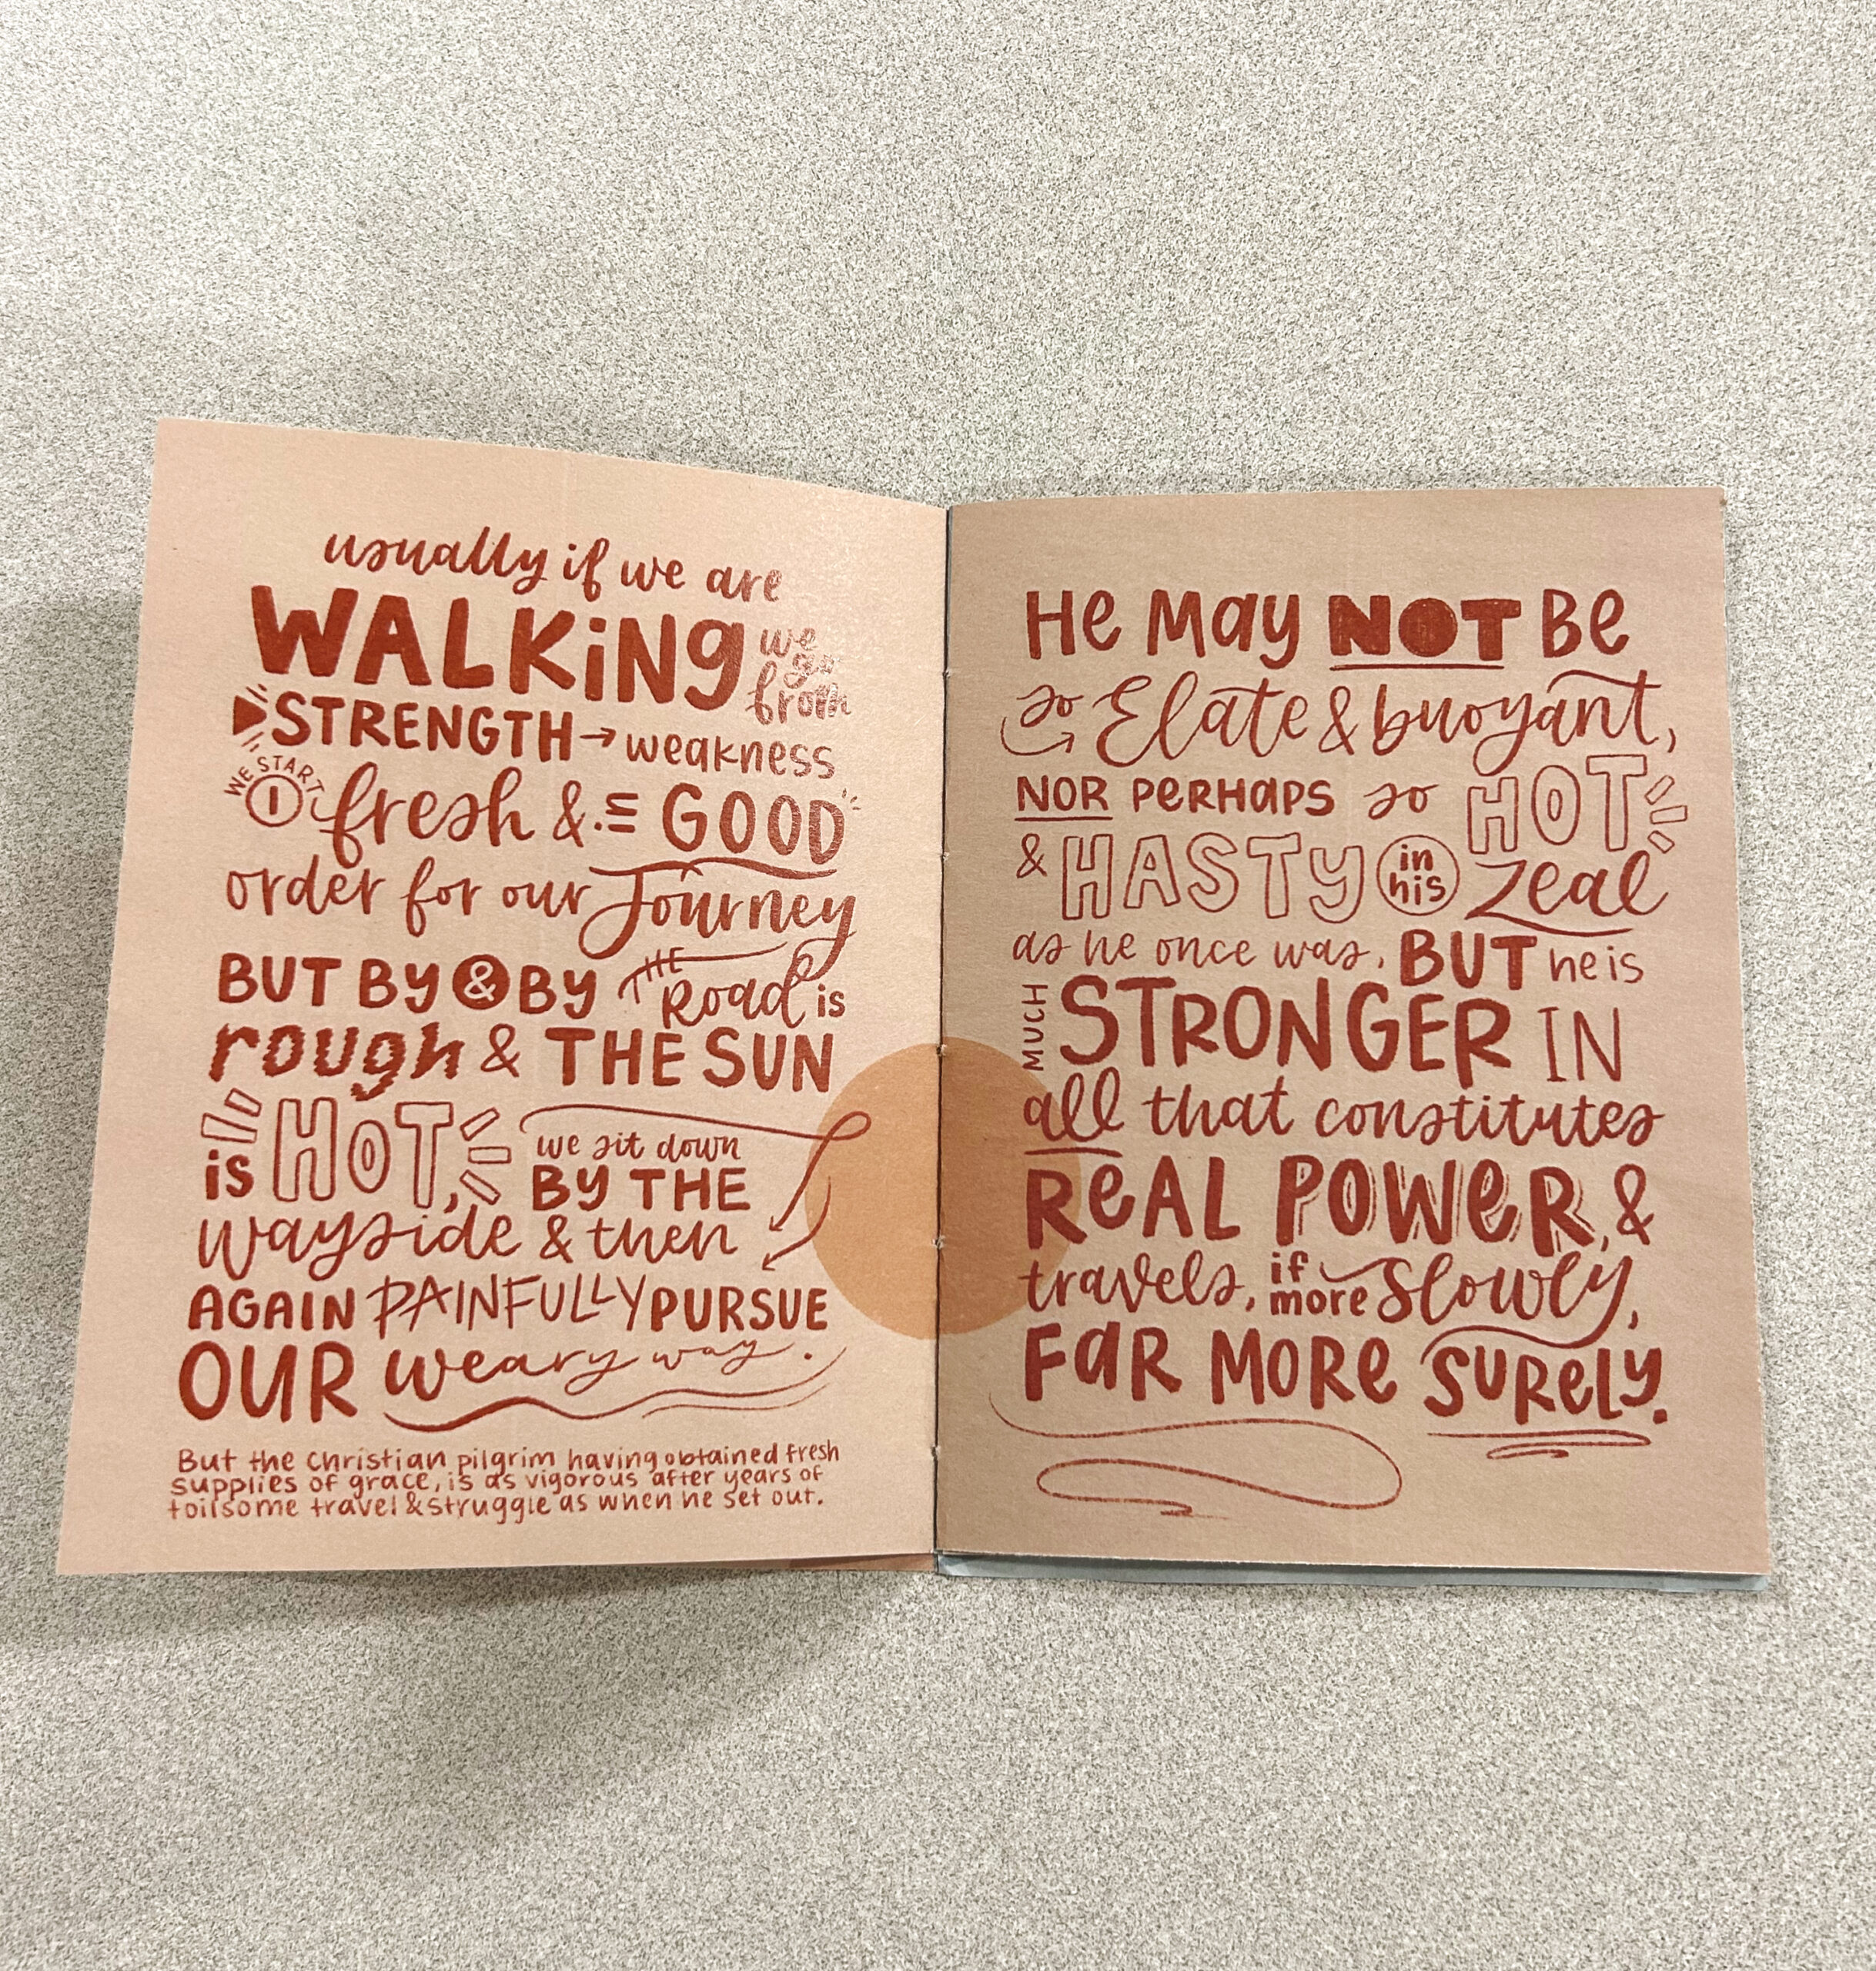 usually if we are
WALKiNG we go from
STRENGTH → weakness
WE START
fresh & in GOOD
order for our Journey
BUT BY & BY THE Road is
rough & THE SUN
is HOT, we sit down
BY THE
wayside & then
AGAIN PAINFULLY PURSUE
OUR weary way.
But the Christian pilgrim having obtained fresh
supplies of grace, is as vigorous after years of
toilsome travel & struggle as when he set out.
He May NOT Be
so Elate & buoyant,
NOR PeRHaPS so HOT
& HASTY in his zeal
as he once was, BUT he is
MUCH STRONGER IN
all that constitutes
ReAL POWeR, &
travels, if more slowly,
FaR MORe SURely.